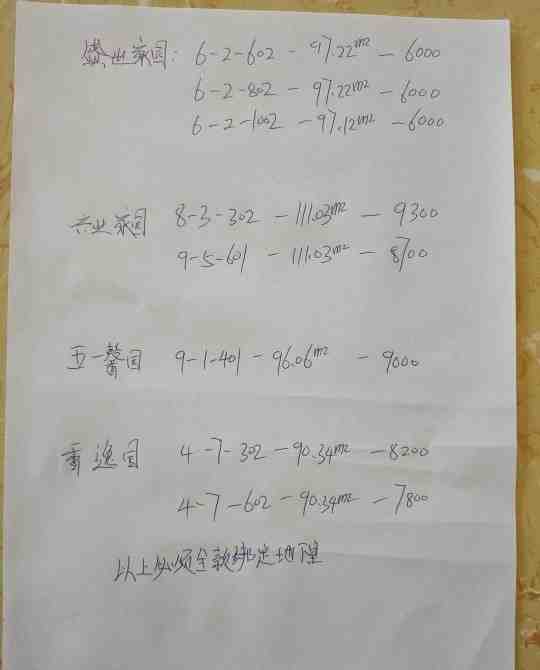 盛世家园: 6-2-602 - 97.22m² - 6000
6-2-802 - 97.22m² - 6000
6-2-1002 - 97.12m² - 6000
兴业家园 8-3-302 - 111.03m² - 9300
9-5-601 - 111.03m² - 8700
五一馨园 9-1-401 - 96.06m² - 9000
香逸园 4-7-302 - 90.34m² - 8200
4-7-602 - 90.34m² - 7800
以上必须全款绑定地下室